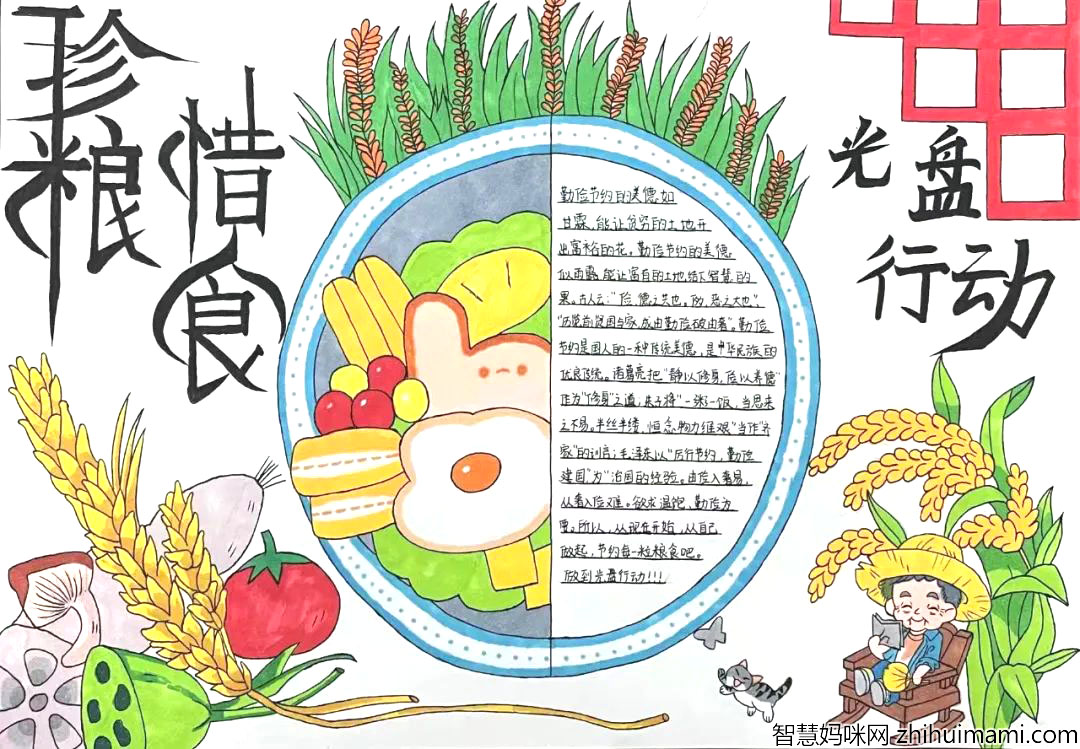 珍惜粮食
光盘
行动
勤俭节约的美德如
甘霖,能让贫穷的土地开
出富裕的花。勤俭节约的美德
似雨露,能让富有的土地结下智慧的
果。古人云:"俭,德之共也。侈,恶之大也"。
"历览前贤国与家,成由勤俭破由奢"。勤俭
节约是国人的一种传统美德,是中华民族的
优良传统。诸葛亮把"静以修身,俭以养德"
作为"修身"之道;朱子将"一粥一饭,当思来
之不易。半丝半缕,恒念物力维艰"当作"齐
家"的训言;毛泽东以"厉行节约,勤俭
建国"为"治国的经验。由俭入奢易,
从奢入俭难。欲求温饱,勤俭为
要。所以,从现在开始,从自己
做起,节约每一粒粮食吧。
做到光盘行动!!!
智慧妈咪网 zhihuimami.com